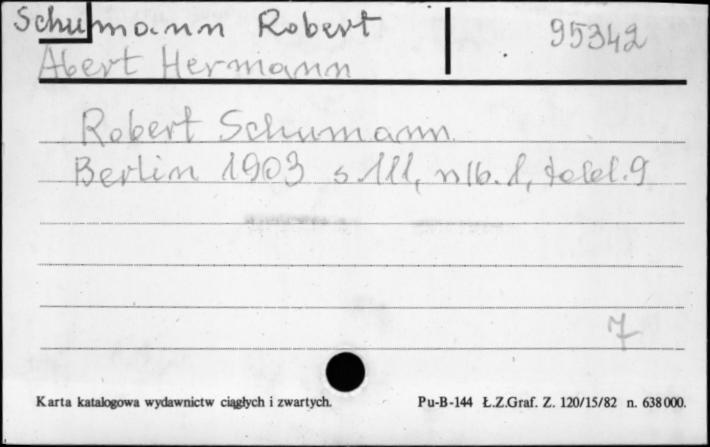 Schumann Robert 95342
Abert Hermann
Robert Schumann
Berlin 1903 s. 111, nlb. 1, tabl. 9
7
Karta katalogowa wydawnictw ciągłych i zwartych. Pu-B-144 Ł.Z.Graf. Z. 120/15/82 n. 638000.